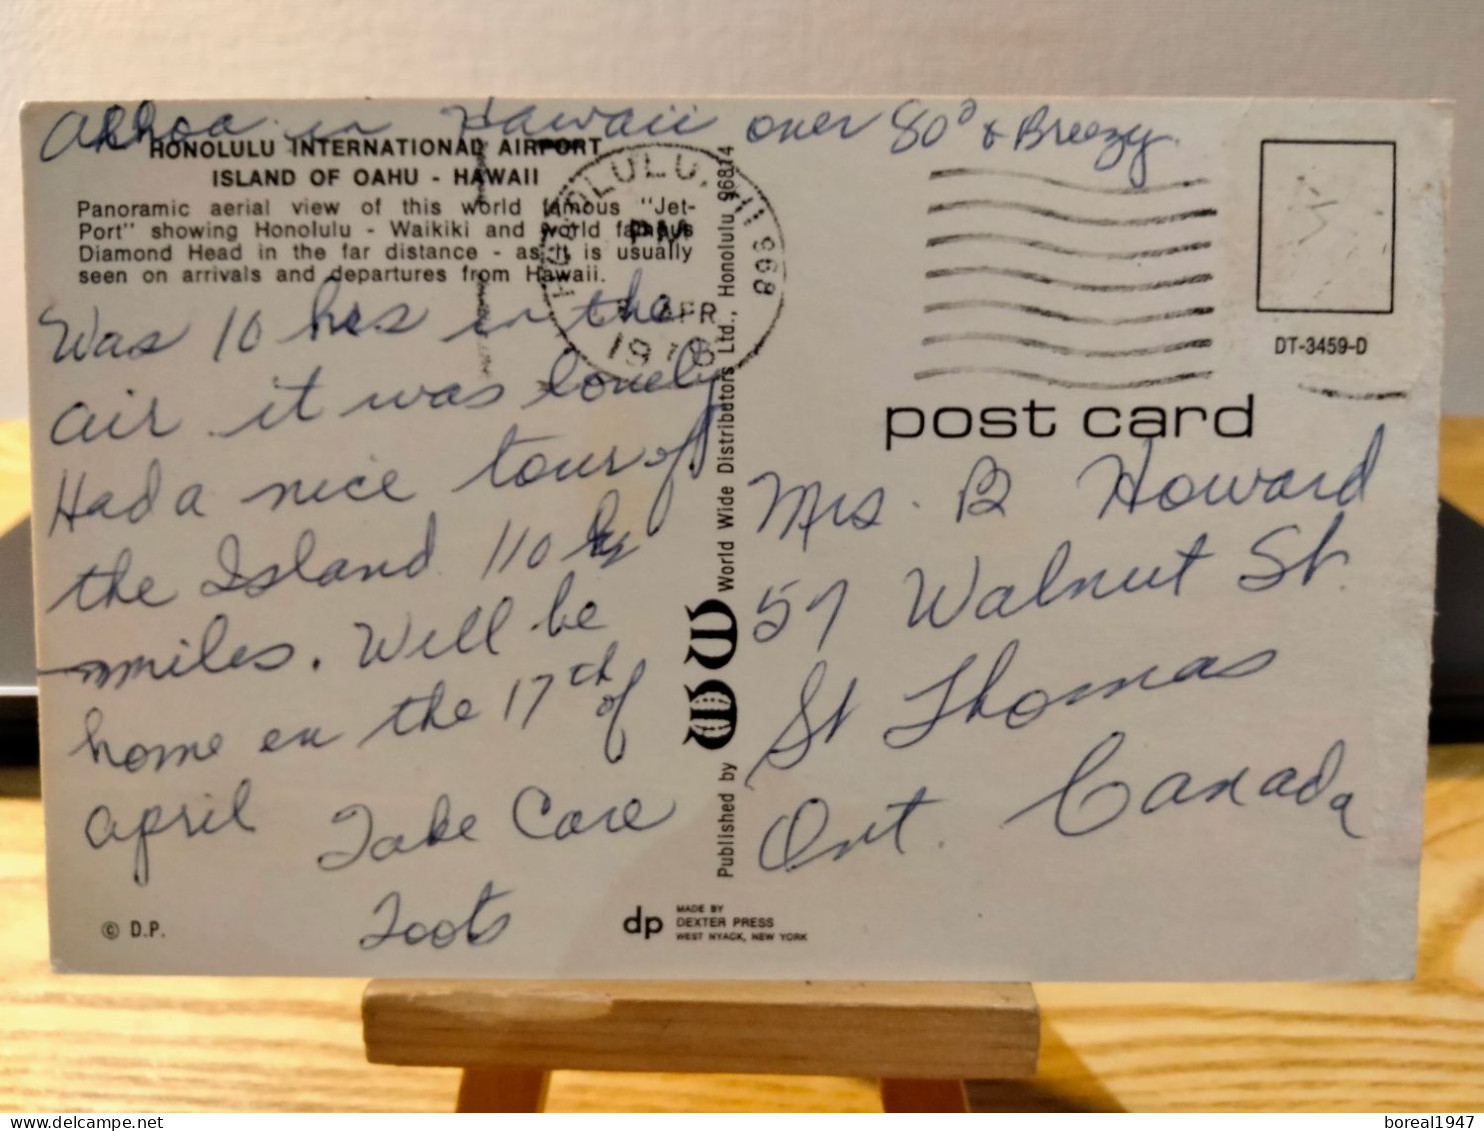 Alhoa in Hawaii over 80° & Breezy.
HONOLULU INTERNATIONAL AIRPORT
ISLAND OF OAHU - HAWAII
Panoramic aerial view of this world famous "Jet-
Port" showing Honolulu - Waikiki and world famous
Diamond Head in the far distance - as it is usually
seen on arrivals and departures from Hawaii.
Was 10 hrs in the
air it was lonely
Had a nice tour of
the Island 110
miles. Will be
home on the 17th of
April Take Care
Toots
© D.P.
HONOLULU, HI 968
PM
APR
1976
Published by WWW World Wide Distributors Ltd., Honolulu 96814
dp MADE BY
DEXTER PRESS
WEST NYACK, NEW YORK
DT-3459-D
post card
Mrs. B Howard
57 Walnut St.
St Thomas
Ont. Canada
boreal1947